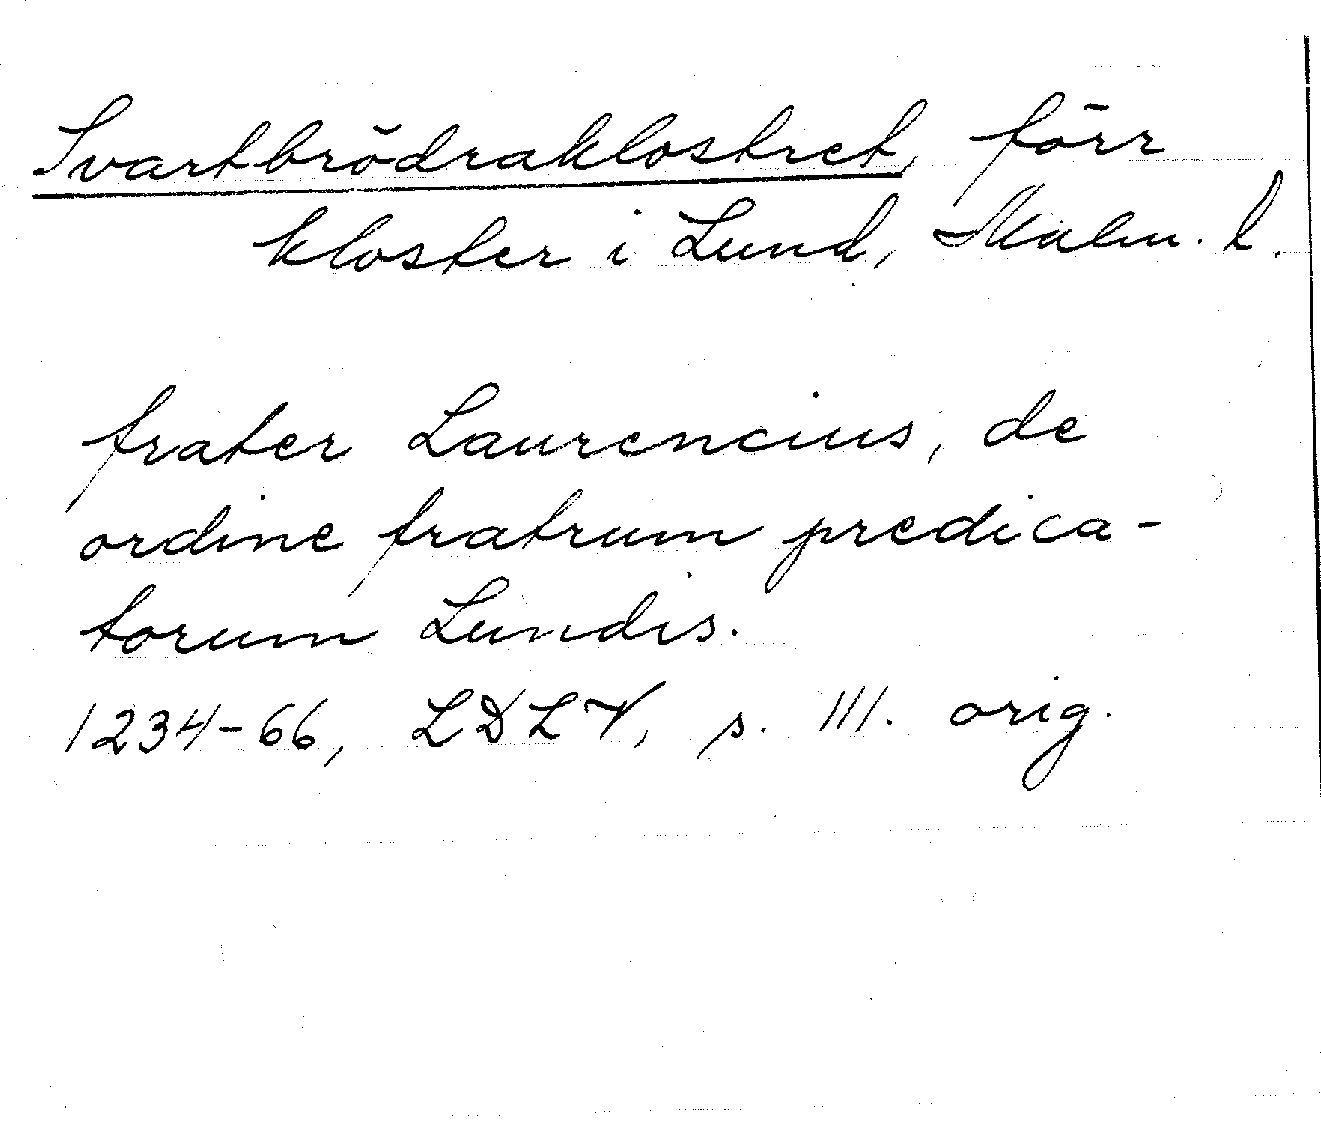 Svartbrödraklostret, förr
kloster i Lund, Malm. l.
frater Laurencius, de
ordine fratrum predica-
torum Lundis.
1234-66, LDLV, s. 111. orig.